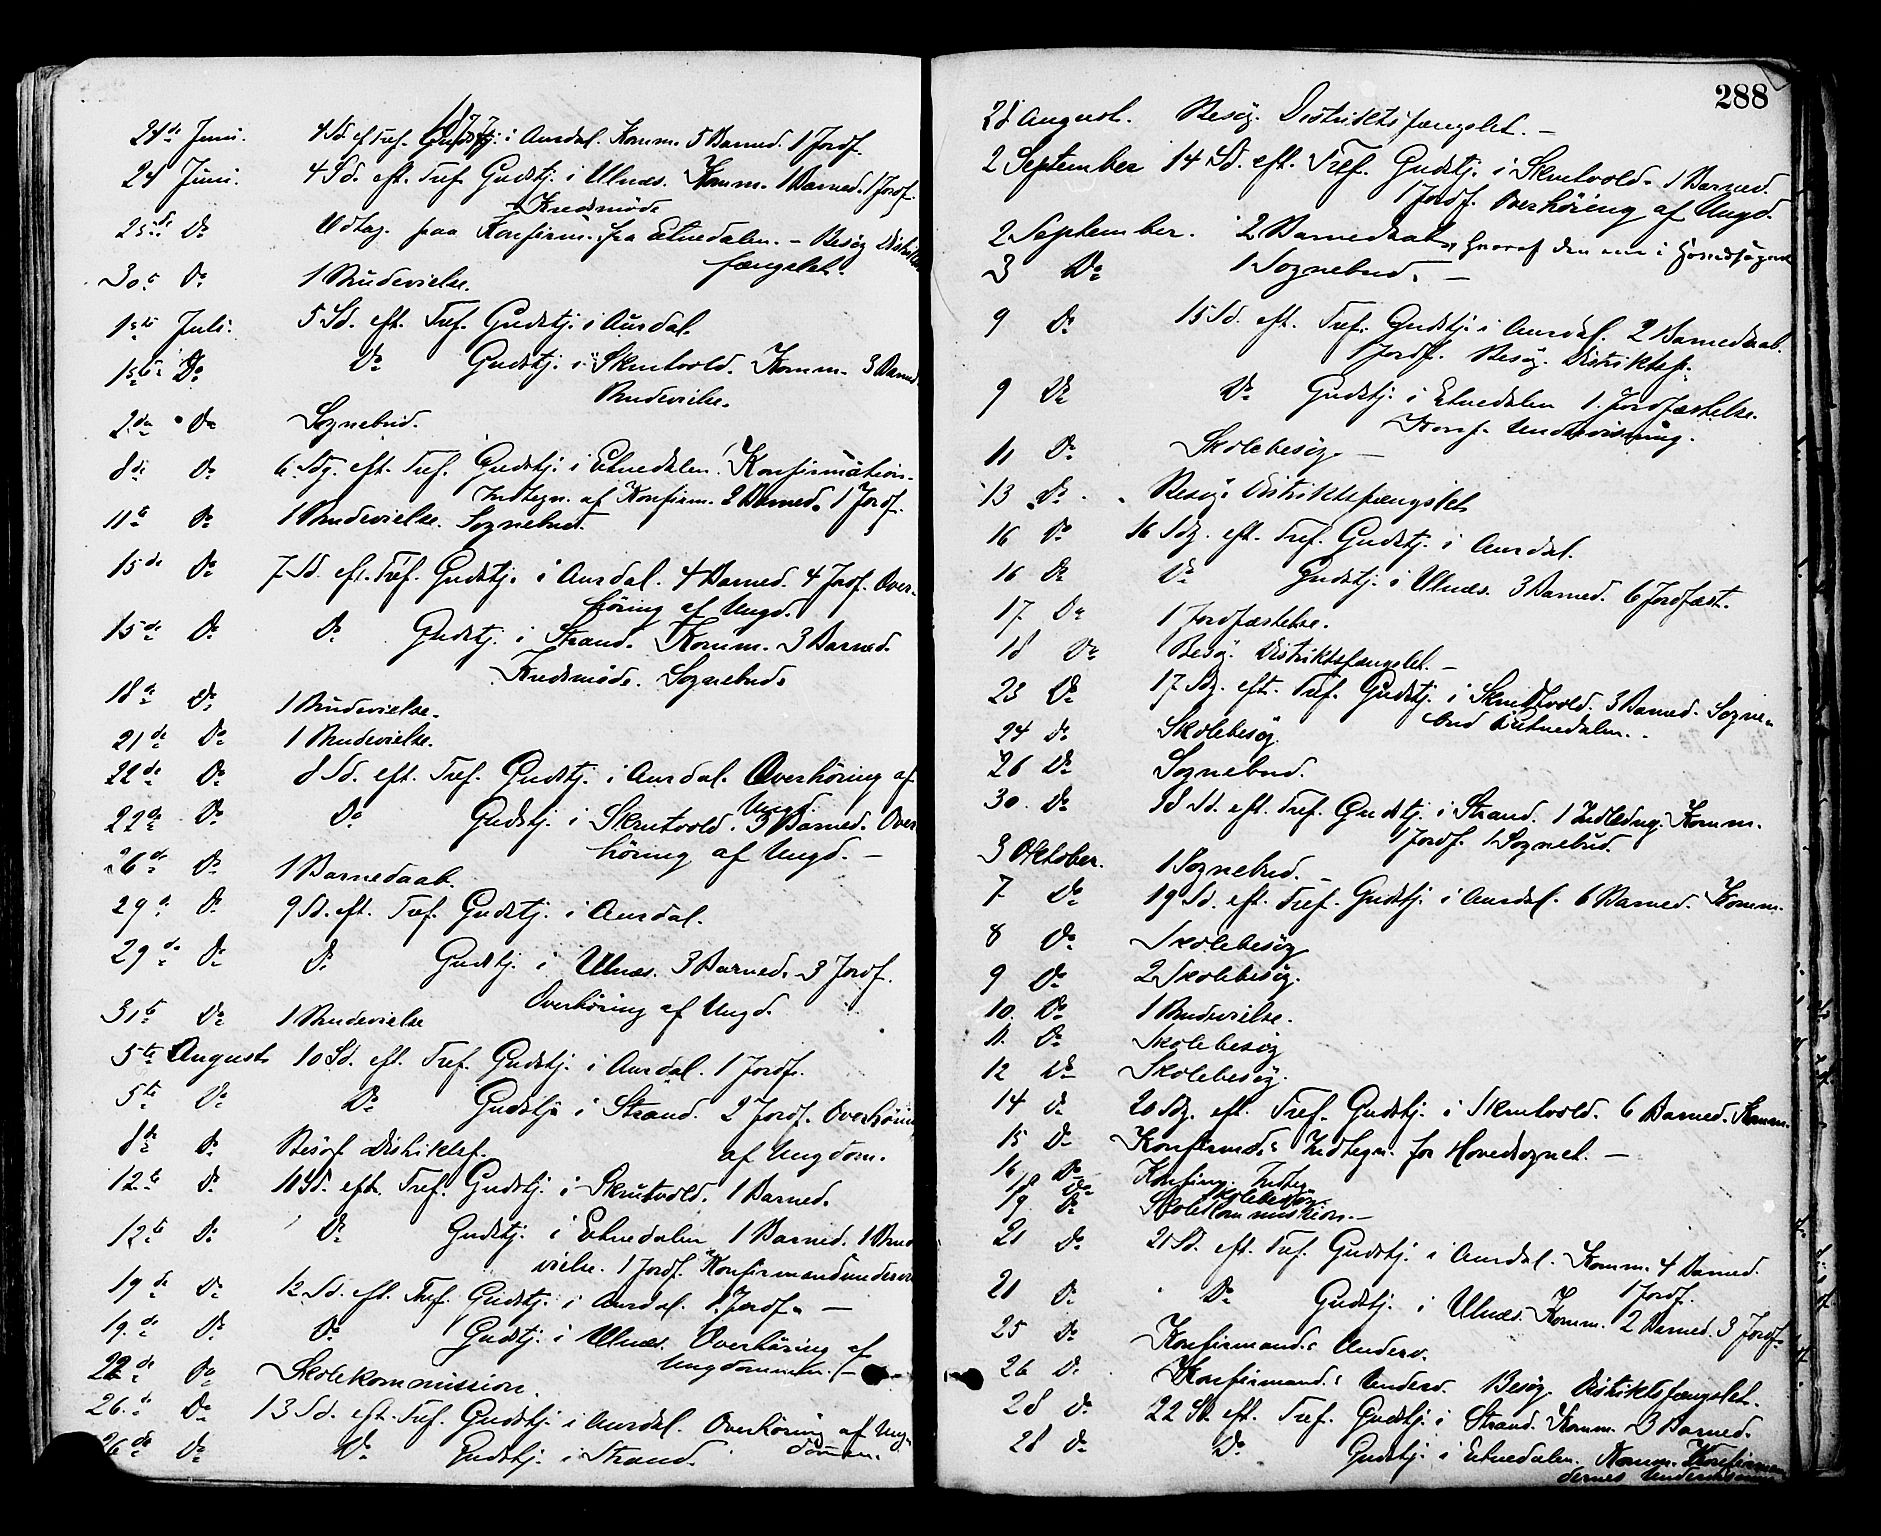 24de Juni. 4 Sd. eft. Tref. Gudstj. i Aurdal. Komm. 5 Barned. 1 Jordf.
24 Juni. 4 Sd. eft. Tref. Gudstj. i Ulnæs. Komm. 1 Barned. 1 Jordf.
Kredsmøde
25de Do Udtag. paa Konfirm. fra Etnedalen. - Besøg Distrikts
fængslet.
30te Do 1 Brudevielse.
1ste Juli. 5 Sd. eft. Tref. Gudstj. i Aurdal.
1ste Do Do Gudstj. i Skrutvold. Komm. 3 Barned
Brudevielse.
2den Do Sognebud.
8de Do 6. Sdg. eft. Tref. Gudstj. i Etnedalen. Konfirmation.
Indtegn. af Konfirm. 2 Barned. 1 Jordf.
11te Do 1 Brudevielse. Sognebud.
15de Do 7 Sd. eft. Tref. Gudstj. i Aurdal. 4 Barned. 4 Jordf. Over-
høring af Ungd.
15de Do Do Gudstj. i Strand. Komm. 3 Barned.
Kredsmøde. Sognebud.
18de Do 1 Brudevielse.
21de Do 1 Brudevielse.
22de Do 8 Sd. eft. Tref. Gudstj. i Aurdal. Overhøring af
Ungd.
22de Do Do Gudstj. i Skrutvold. 3 Barned. Over
høring af Ungd. -
26de Do 1 Barnedaab.
29de Do 9 Sd. eft. Tref. Gudstj. i Aurdal.
29de Do Do Gudstj. i Ulnæs. 3 Barned. 3 Jordf.
Overhøring af Ungd.
31te Do 1 Brudevielse
5te August 10 Sd. eft. Tref. Gudstj. i Aurdal. 1 Jordf.
5te Do Do Gudstj. i Strand. 2 Jordf. Overhøring
af Ungdom.
8de Do Besøg Distriktsf.
12te Do 11 Sd. eft. Tref. Gudstj. i Skrutvold. 1 Barned.
12te Do Do Gudstj. i Etnedalen 1 Barned. 1 Brude
vielse. 1 Jordf. Konfirmandunderv
19de Do 12 Sd. eft. Tref. Gudstj. i Aurdal. 1 Jordf. -
19de Do Do Gudstj. i Ulnæs. Overhøring af
Ungdommen. -
22de Do Skolekommission.
26de Do 13 Sd. eft. Tref. Gudstj. i Aurdal. Overhøring af Ung-
dommen.
26de Do Do Gudstj. i Strand.
288
28 August. Besøg. Distriktsfængslet. -
2 September 14 Sd. eft. Tref. Gudstj. i Skrutvold. 1 Barned.
1 Jordf. Overhøring af Ungd.
2 September. 2 Barnedaab, hvoraf den ene i Hovedsognet
3 Do 1 Sognebud. -
9 Do 15 Sd. eft. Tref. Gudstj. i Aurdal. 2 Barnedaab.
1 Jordf. Besøg. Distriktsf.
9 Do Do Gudstj. i Etnedalen 1. Jordfæstelse.
Konf. Undervisning.
11 Do Skolebesøg. -
13 Do Besøg. Distriktsfængslet
16 Do 16 Sdg. eft. Tref. Gudstj. i Aurdal.
16 Do Do Gudstj. i Ulnæs. 3 Barned. 6 Jordfæst.
17 Do 1 Jordfæstelse.
18 Do Besøg. Distriktsfængslet. -
23 Do 17 Sdg. eft. Tref. Gudstj. i Skrutvold. 3 Barned. Sogne-
bud i Etnedalen.
24 Do Skolebesøg
26 Do Sognebud.
30. Do 18 Sd. eft. Tref. Gudstj. i Strand. 1 Indledng. Komm.
1 Jordf. 1 Sognebud.
3 Oktober. 1 Sognebud. -
7 Do 19 Sd. eft. Tref. Gudstj. i Aurdal. 6 Barned. Komm.
8 Do Skolebesøg
9 Do 2 Skolebesøg.
10. Do 1 Brudevielse.
11. Do Skolebesøg
12 Do Skolebesøg.
14 Do 20 Sdg. eft. Tref. Gudstj. i Skrutvold. 6 Barned. Komm.
15 Do Konfirmand. Indtegn. for Hovedsognet. -
16 Do Konfirm. Indteg.
18 Do Skolebesøg.
19. Do Skolekommission. -
21 Do 21 Sd. eft. Tref. Gudstj. i Aurdal. Komm. 4 Barned.
1 Jordf.
21 Do Do Gudstj. i Ulnæs. Komm. 2 Barned. 3 Jordf.
25 Do Konfirmand. Underv.
26 Do Konfirmand. Underv. Besøg. Distriktsfængslet.
28 Do 22 Sd. eft. Tref. Gudstj. i Strand. Komm. 3 Barned.
28 Do Do Gudstj. i Etnedalen. Komm. Konfirman
dernes Undervisning